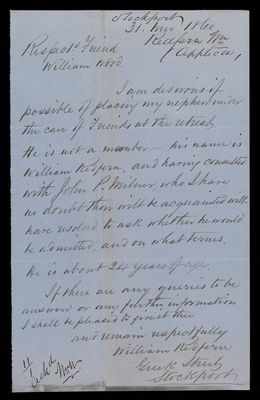 Stockport
31. 1860
Redfern Wm
(Applicn)
Respectd Friend
William Wood
I am desirous if
possible of placing my nephew under
the care of Friends at the retreat
He is not a member - his name is
William Redfern, and having consulted
with John P. Milner, who I have
no doubt thou will be acquainted with
have resolved to ask whether he would
be admitted, and on what terms.
He is about 24 years of age.
If there are any queries to be
answered or any further information
I shall be pleased to give it thee
and remain respectfully
William Redfern
Greek Street
Stockport